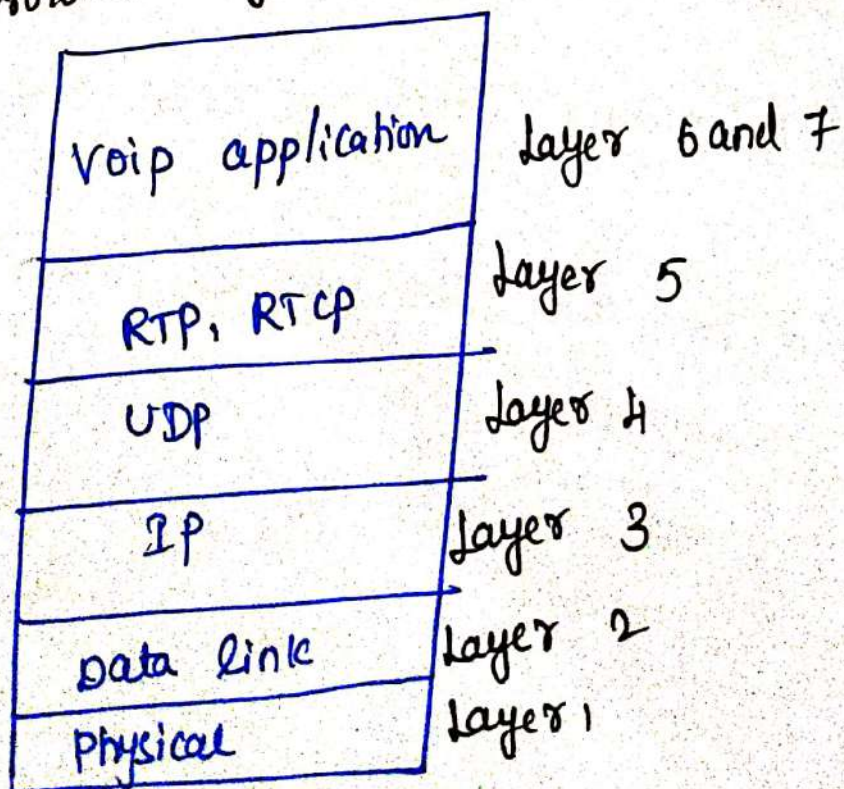 Voip application Layer 6 and 7
RTP, RTCP Layer 5
UDP Layer 4
IP Layer 3
Data link Layer 2
Physical Layer 1